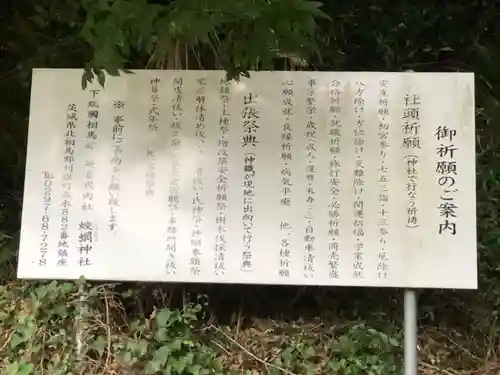 御祈願のご案内
社頭祈願（神社で行なう祈祷）
安産祈願・初宮参り・七五三詣・十三参り・厄除け
八方除け・方位除け・災難除け・開運招福・学業成就
合格祈願・就職祈願・旅行安全・必勝祈願・商売繁盛
事業繁栄・歳祝（成人・還暦・米寿・）・自動車清祓い
心願成就・良縁祈願・病気平癒 他、各種祈願
出張祭典（神職が現地に出向いて行なう祭典）
地鎮祭・上棟祭・増改築安全祈願祭・樹木伐採清祓い
家屋解体清め祓い・清祓い・氏神祭・神棚奉鎮祭
神葬祭・式年祭 他、各種祭典
※ 事前にご予約をお願い致します。
下総國相馬郡 延喜式内社 蛟蝄神社
茨城県北相馬郡利根町立木882番地鎮座
℡0297-68-7278